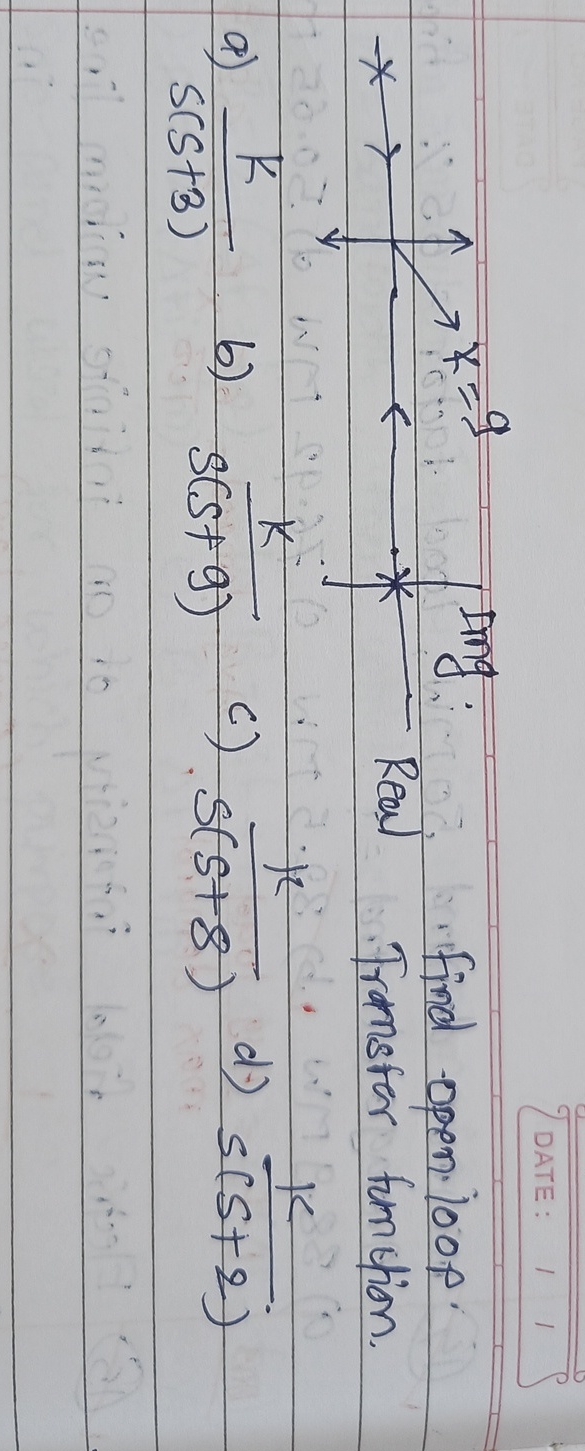 DATE: / /
K=9
Img
Real
find open loop
Transfer function.
a) K / S(S+3) b) K / S(S+9) c) K / S(S+8) d) K / S(S+2)